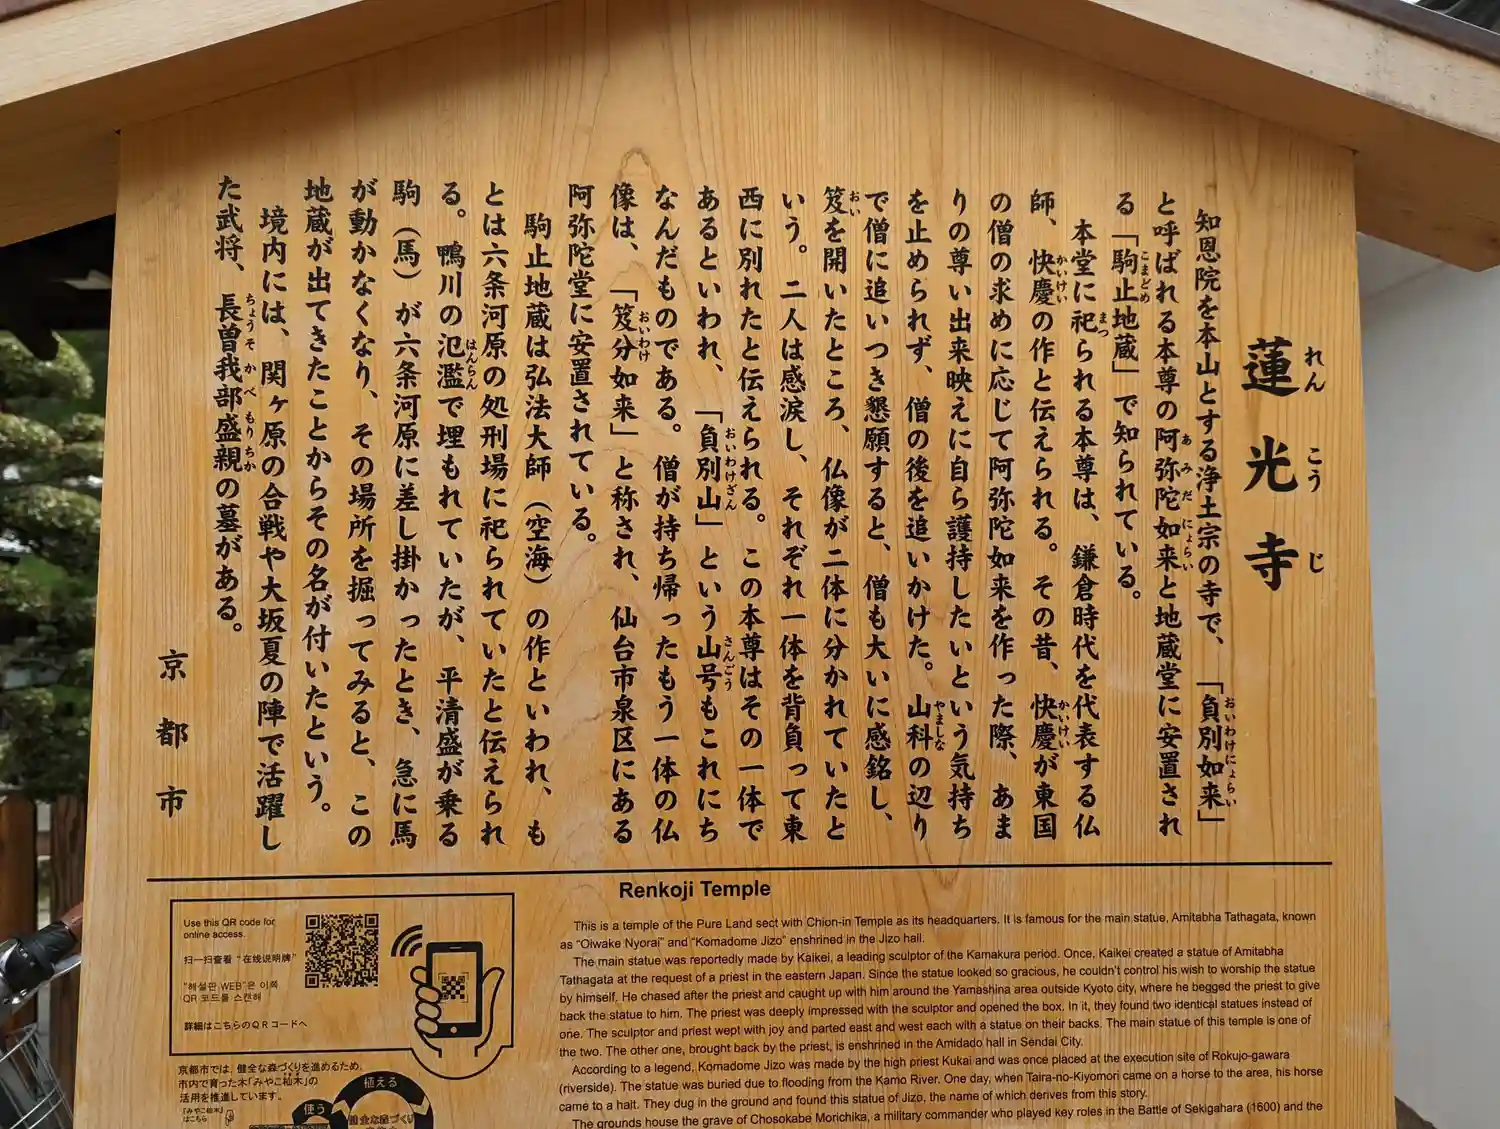 蓮光寺
れんこうじ
知恩院を本山とする浄土宗の寺で、「負別如来」
おいわけにょらい
と呼ばれる本尊の阿弥陀如来と地蔵堂に安置され
あみだにょらい
る「駒止地蔵」で知られている。
こまどめ
本堂に祀られる本尊は、鎌倉時代を代表する仏
まつ
師、快慶の作と伝えられる。その昔、快慶が東国
かいけい
かいけい
の僧の求めに応じて阿弥陀如来を作った際、あま
りの尊い出来映えに自ら護持したいという気持ち
を止められず、僧の後を追いかけた。山科の辺り
やましな
で僧に追いつき懇願すると、僧も大いに感銘し、
笈を開いたところ、仏像が二体に分かれていたと
おい
いう。二人は感涙し、それぞれ一体を背負って東
西に別れたと伝えられる。この本尊はその一体で
あるといわれ、「負別山」という山号もこれにち
おいわけざん
さんごう
なんだものである。僧が持ち帰ったもう一体の仏
像は、「笈分如来」と称され、仙台市泉区にある
おいわけ
阿弥陀堂に安置されている。
駒止地蔵は弘法大師（空海）の作といわれ、も
とは六条河原の処刑場に祀られていたと伝えられ
る。鴨川の氾濫で埋もれていたが、平清盛が乗る
はんらん
駒（馬）が六条河原に差し掛かったとき、急に馬
が動かなくなり、その場所を掘ってみると、この
地蔵が出てきたことからその名が付いたという。
境内には、関ヶ原の合戦や大坂夏の陣で活躍し
た武将、長曽我部盛親の墓がある。
ちょうそかべもりちか
京都市
Use this QR code for
online access.
扫一扫查看 “在线说明牌”
"해설판 WEB"은 이쪽
QR 코드를 스캔해
詳細はこちらのQRコードへ
京都市では、健全な森づくりを進めるため、
市内で育った木「みやこ杣木」の
活用を推進しています。
「みやこ杣木」
はこちら
植える
使う
健全な森づくり
Renkoji Temple
This is a temple of the Pure Land sect with Chion-in Temple as its headquarters. It is famous for the main statue, Amitabha Tathagata, known
as “Oiwake Nyorai” and “Komadome Jizo” enshrined in the Jizo hall.
The main statue was reportedly made by Kaikei, a leading sculptor of the Kamakura period. Once, Kaikei created a statue of Amitabha
Tathagata at the request of a priest in the eastern Japan. Since the statue looked so gracious, he couldn’t control his wish to worship the statue
by himself. He chased after the priest and caught up with him around the Yamashina area outside Kyoto city, where he begged the priest to give
back the statue to him. The priest was deeply impressed with the sculptor and opened the box. In it, they found two identical statues instead of
one. The sculptor and priest wept with joy and parted east and west each with a statue on their backs. The main statue of this temple is one of
the two. The other one, brought back by the priest, is enshrined in the Amidado hall in Sendai City.
According to a legend, Komadome Jizo was made by the high priest Kukai and was once placed at the execution site of Rokujo-gawara
(riverside). The statue was buried due to flooding from the Kamo River. One day, when Taira-no-Kiyomori came on a horse to the area, his horse
came to a halt. They dug in the ground and found this statue of Jizo, the name of which derives from this story.
The grounds house the grave of Chosokabe Morichika, a military commander who played key roles in the Battle of Sekigahara (1600) and the